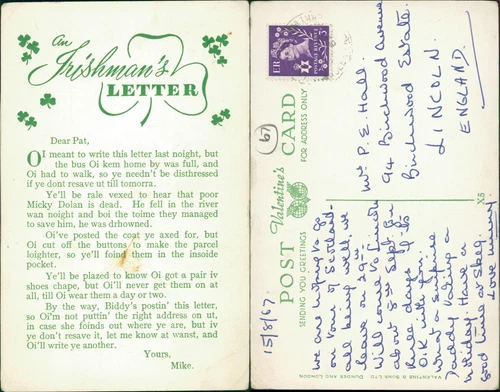 An
Irishman's
LETTER
Dear Pat,
OI meant to write this letter last noight, but
the bus Oi kem home by was full, and
Oi had to walk, so ye needn't be disthressed
if ye dont resave ut till tomorra.
Ye'll be rale vexed to hear that poor
Micky Dolan is dead. He fell in the river
wan noight and boi the toime they managed
to save him, he was drhowned.
Oi've posted the coat ye axed for, but
Oi cut off the buttons to make the parcel
loighter, so ye'll foind them in the insoide
pocket.
Ye'll be plazed to know Oi got a pair iv
shoes chape, but Oi'll never get them on at
all, till Oi wear them a day or two.
By the way, Biddy's postin' this letter,
so Oi'm not puttin' the right address on ut,
in case she foinds out where ye are, but iv
ye don't resave it, let me know at wanst, and
Oi'll write ye another.
Yours,
Mike.
POST Valentine's CARD
SENDING YOU GREETINGS
FOR ADDRESS ONLY
67
VALENTINE & SONS LTD DUNDEE AND LONDON
X5
POSTAGE REVENUE
15/8/67.
we are hoping to go
on Tour of Scotland
all being well, we
leave on 29th
Will come to Lincoln
about 5th Sept for
three days if its
O.K with you.
What a surprise
Daddy taking a
holiday. Have a
good time at Skeg.
Love
Mr P. E. Hall
94 Birchwood Avenue
Birchwood Estate.
LINCOLN
ENGLAND.